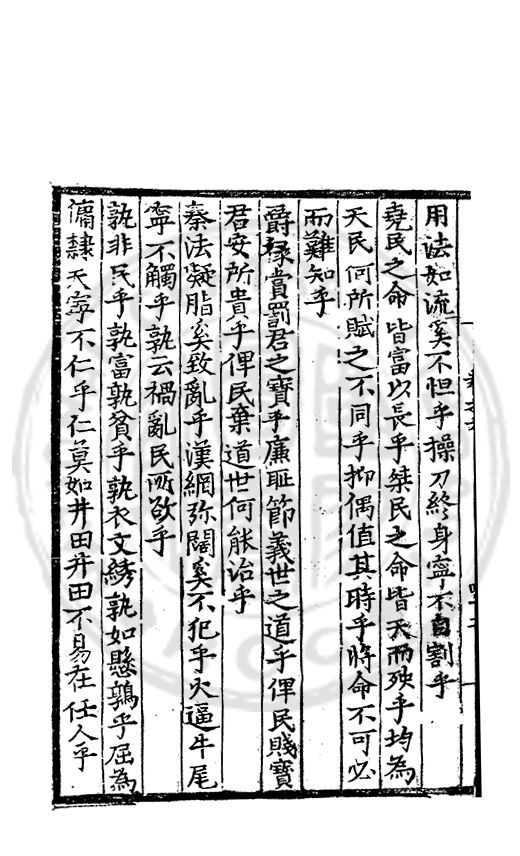 用法如流奚不怛乎操刀終身寧不自割乎
堯民之命皆富以長乎桀民之命皆夭而殃乎均為
天民何所賦之不同乎抑偶值其時乎將命不可必
而難知乎
爵祿賞罰君之寶乎廉耻節義世之道乎俾民賤寶
君安所貴乎俾民棄道世何能治乎
秦法凝脂奚致亂乎漢網弥闊奚不犯乎火逼牛尾
寧不觸乎孰云禍亂民所欲乎
孰非民乎孰富孰貧乎孰衣文綉孰如懸鶉乎屈為
傭隸天寧不仁乎仁莫如井田井田不易在任人乎